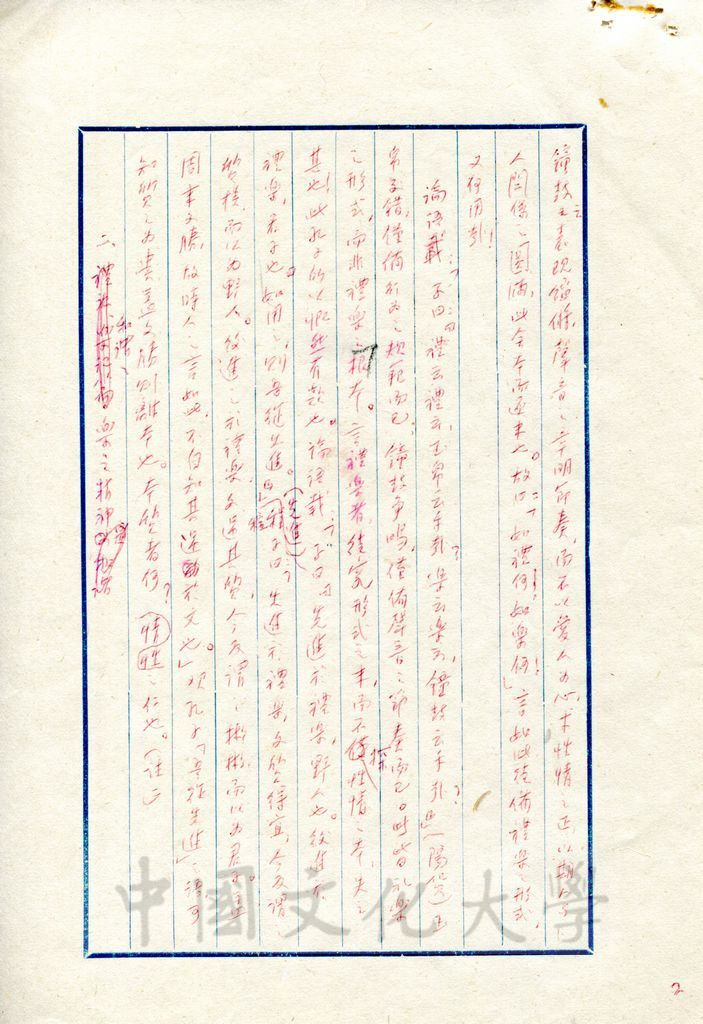 鐘鼓之表現鏗鏘、聲音之章明節奏,而不以愛人為心、求性情之正,以期人與
人関係之圓滿,此全本而逐末也。故曰:「如禮何!如樂何!」言如此徒備禮樂之形式,
又何用哉!
論語載:子曰:「禮云禮云,玉帛云乎哉?樂云樂云,鐘鼓云乎哉?」(陽貨)玉
帛交錯,僅備行為之規範而已,鐘鼓争鳴,僅備聲音之節奏而已。此皆禮樂
之形式,而非禮樂之根本。言禮樂者,徒究形式之末,而不探性情之本,失之
甚也!此孔子所以慨然有歎也。論語載:子曰:「先進於禮樂,野人也。後進於
禮樂,君子也。如用之,則吾從先進。」(先進)程子曰:「先進於禮樂,文質得宜,今反謂之
質樸,而以為野人。後進之於禮樂,文過其質,今反謂之彬彬,而以為君子。蓋
周末文勝,故時人之言如此,不自知其過於文也。」觀孔子「吾從先進」之語,可
知質之為貴,蓋文勝則離本也。本質者何?情性、仁也。(註二)
二、禮樂之精神
中國文化大學
2